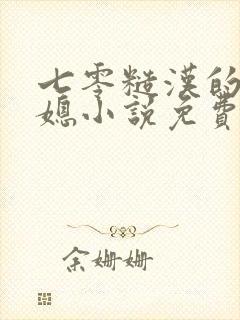 七零糙漢的
媳小説免費
余姗姗